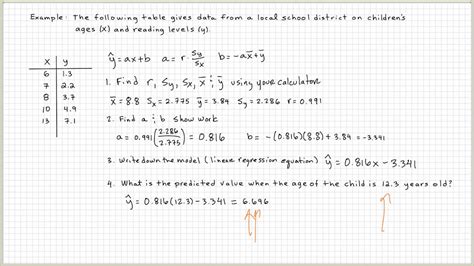 Example: The following table gives data from a local school district on children's
ages (x) and reading levels (y).
x y
6 1.3
7 2.2
8 3.7
10 4.9
13 7.1
ŷ = ax + b a = r · Sy/Sx b = -ax̄ + ȳ
1. Find r, Sy, Sx, x̄ ; ȳ using your calculator.
x̄ = 8.8 Sx = 2.775 ȳ = 3.84 Sy = 2.286 r = 0.991
2. Find a ; b show work
a = 0.991(2.286/2.775) = 0.816 b = -(0.816)(8.8) + 3.84 = -3.341
3. Write down the model (linear regression equation) ŷ = 0.816x - 3.341
4. What is the predicted value when the age of the child is 12.3 years old?
ŷ = 0.816(12.3) - 3.341 = 6.696